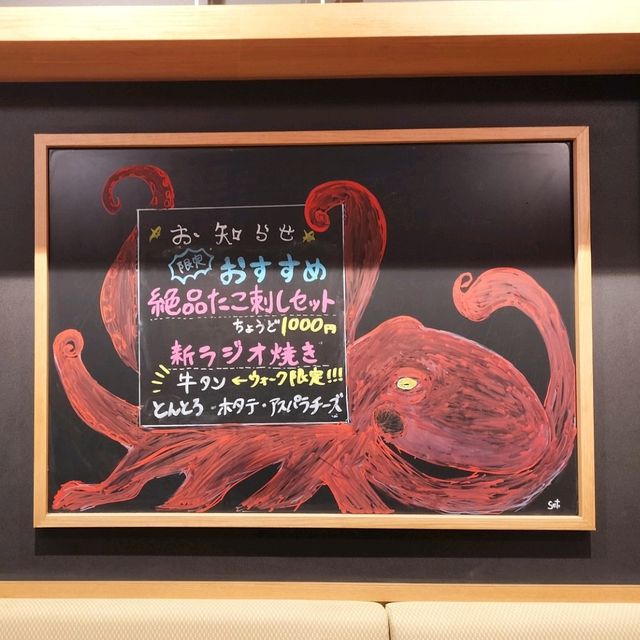 お知らせ
限定 おすすめ
絶品たこ刺しセット
ちょうど1000円
新ラジオ焼き
牛タン ←ウォーク限定!!!
とんとろ・ホタテ・アスパラチーズ